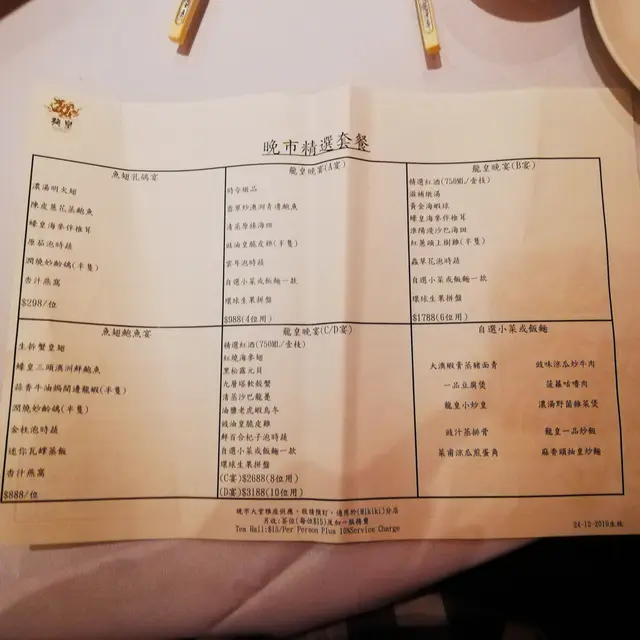 龍皇
晚市精選套餐
魚翅乳鴿宴
濃湯明火翅
陳皮蔥花蒸鮑魚
蠔皇海參伴榆耳
原茄泡時蔬
潤燒妙齡鴿(半隻)
杏汁燕窩
$298/位
龍皇晚宴(A宴)
時令燉品
翡翠炒澳洲青邊鮑魚
清蒸原條海斑
豉油皇脆皮雞(半隻)
雲耳泡時蔬
自選小菜或飯麵一款
環球生果拼盤
$988(4位用)
龍皇晚宴(B宴)
精選紅酒(750ML/壹枝)
滋補燉湯
黃金海蝦球
蠔皇海參伴榆耳
淮陽漫沙巴海斑
紅蔥頭上樹雞(半隻)
蟲草花泡時蔬
自選小菜或飯麵一款
環球生果拼盤
$1788(6位用)
魚翅鮑魚宴
生拆蟹皇翅
蠔皇三頭澳洲鮮鮑魚
蒜香牛油焗開邊龍蝦(半隻)
潤燒妙齡鴿(半隻)
金柱泡時蔬
迷你瓦罉蒸飯
杏汁燕窩
$888/位
龍皇晚宴(C/D宴)
精選紅酒(750ML/壹枝)
紅燒海參翅
黑松露元貝
九層塔軟殼蟹
清蒸沙巴龍躉
油鹽老虎蝦烏冬
豉油皇脆皮雞
鮮百合杞子泡時蔬
自選小菜或飯麵一款
環球生果拼盤
(C宴)$2688(8位用)
(D宴)$3188(10位用)
自選小菜或飯麵
大澳蝦膏蒸豬面青 豉味涼瓜炒牛肉
一品豆腐煲 菠蘿咕嚕肉
龍皇小炒皇 濃湯野菌雜菜煲
豉汁蒸排骨 龍皇一品炒飯
菜甫涼瓜煎蛋角 麻香頭抽皇炒麵
晚市大堂雅座供應，敬請預訂，適用於(Mikiki)分店
另收:茶位(每位$15)及加一服務費
Tea Hall:$15/Per Person Plus 10%Service Charge
24-12-2019生效